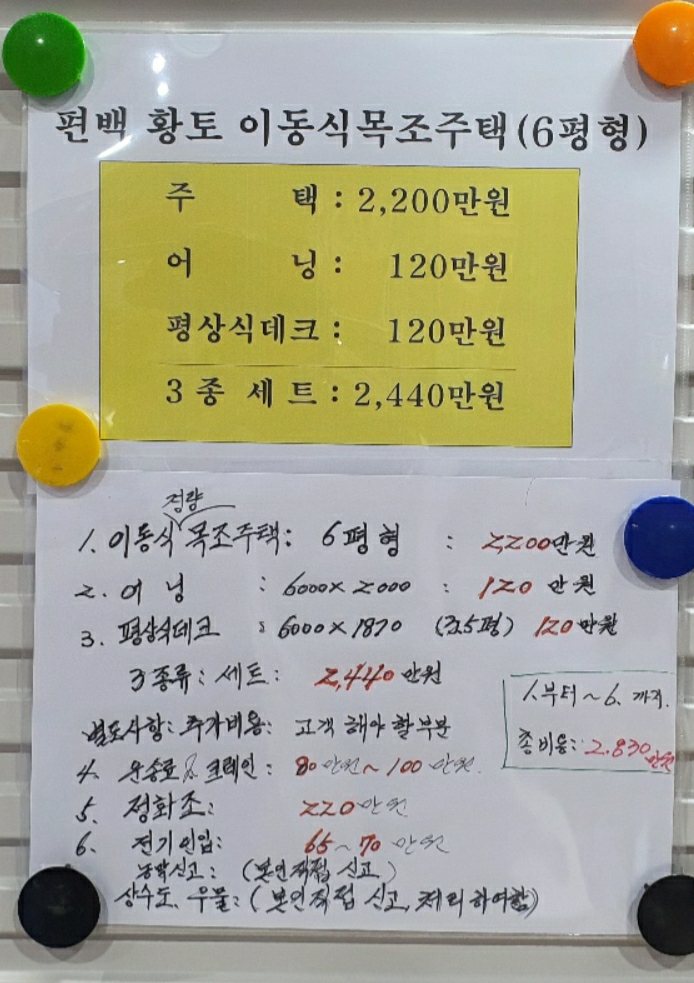 편백 황토 이동식목조주택(6평형)
주 택 : 2,200만원
어 닝 : 120만원
평상식데크 : 120만원
3 종 세 트 : 2,440만원
경량
1. 이동식 목조주택: 6평형 : 2,200만원
2. 어 닝 : 6000×2000 : 120 만원
3. 평상식데크 : 6000×1870 (3.5평) 120만원
3종류: 세트: 2,440만원
1.부터~6. 까지.
총비용: 2.830만원
별도사항: 추가비용: 고객 해야 할 부분
4. 운송료 & 크레인: 80만원~100만원.
5. 정화조: 220만원
6. 전기인입: 65~70 만원
농막신고: (본인직접 신고)
상수도, 우물: (본인직접 신고, 처리하여함)